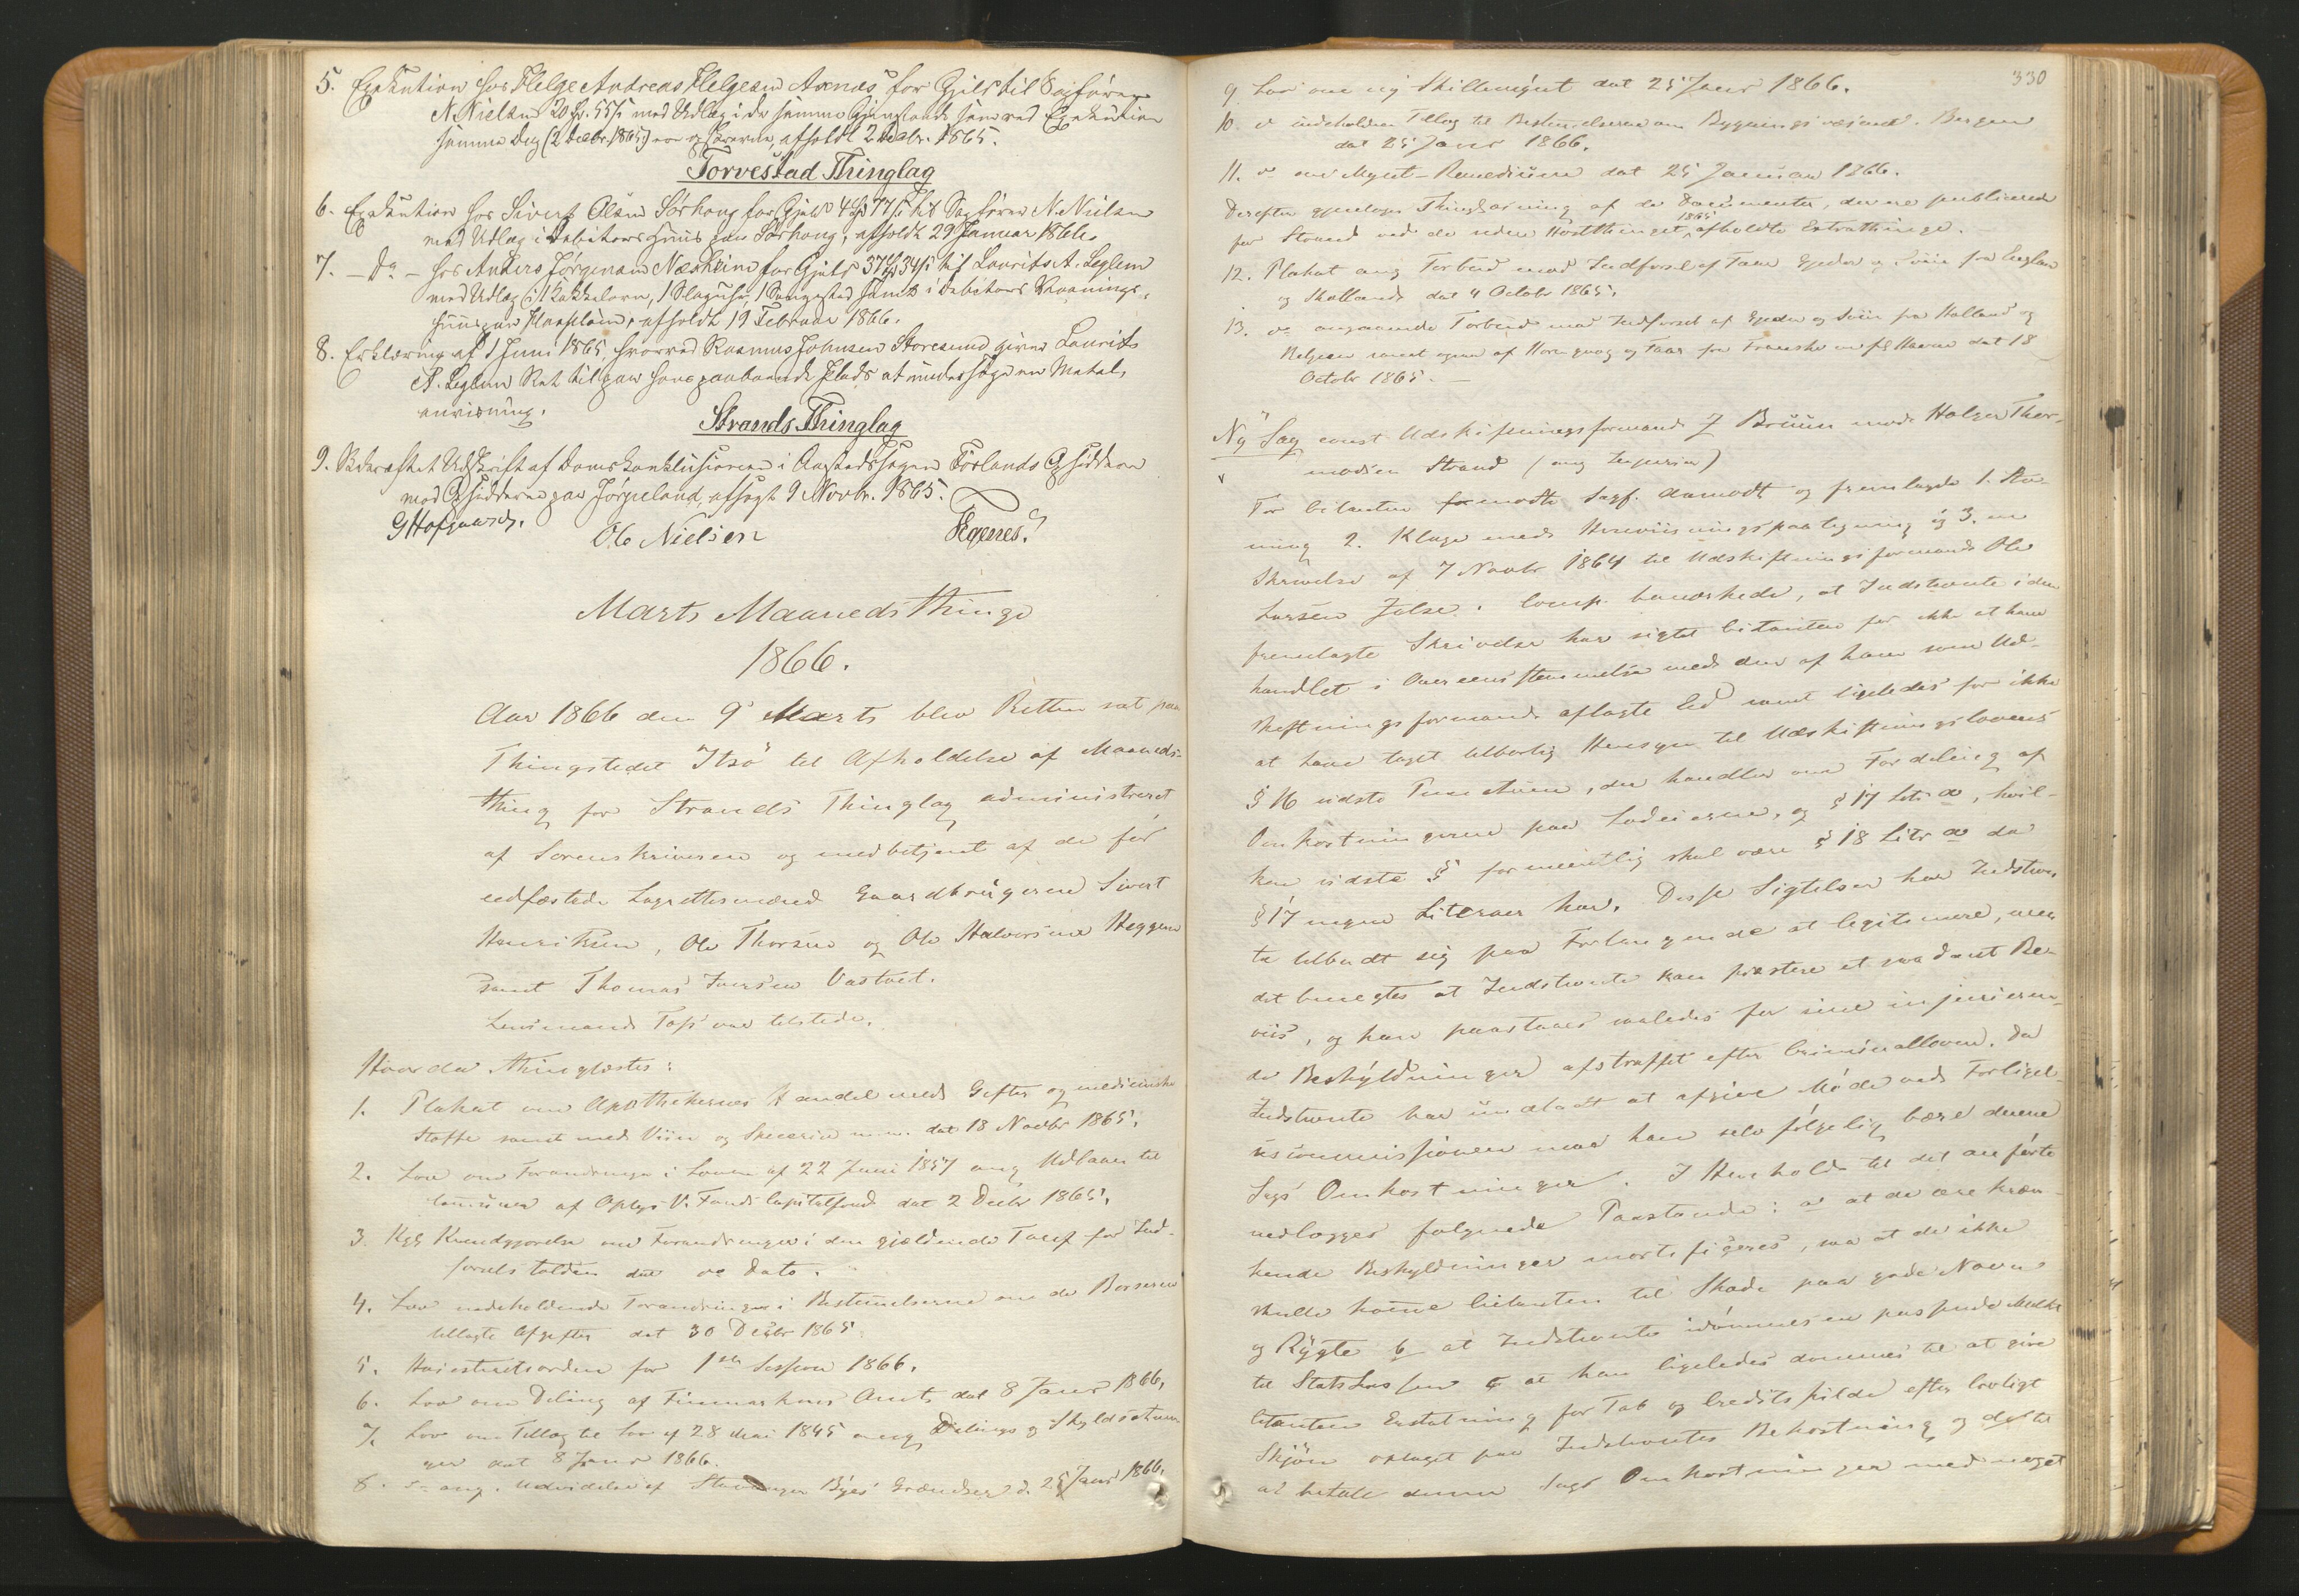 5. Execution hos Helge Andreas Helgesen Axnes for Gjæld til Sagfører
N. Nielsen 20 Spd. 55 s med Udlæg i de samme Gjenstande som ved Execution
samme Dag (2 Decbr. 1865) afholdt 2 Decbr. 1865.
Torvestad Thinglag
6. Execution hos Sivert Olsen Sørhoug for Gjæld 4 Spd 77 s til Sagfører N. Nielsen
med Udlæg i Debitors Huus paa Sørhoug, afholdt 29 Januar 1866.
7. - Do - hos Anders Jørgensen Næsheim for Gjæld 37 Spd 34 s til Laurits A. Leglem
med Udlæg i 1 Kakkelovn, 1 Slaguhr, 1 Sengested samt i Debitors Vaanings-
huus paa afholdt 19 Februar 1866.
8. Erklæring af 1 Juni 1865, hvorved Rasmus Johnsen Storesund giver Laurits
A. Leglem Ret til paa hans paaboende Plads at undersøge en Metal-
anvisning.
Strands Thinglag
9. Bekræftet Udskrift af Domskonklusionen i Aastedssagen Førlands Opsiddere
mod Opsidderne paa Jørpeland, afsagt 9 Novbr. 1865.
G Hofgaard. Ole Nielsen Egenes.
Marts Maanedsthinge
1866.
Aar 1866 den 9' Marts blev Retten sat paa
Thingstedet Itsø til Afholdelse af Maaneds-
thing for Strands Thinglag administreret
af Sorenskriveren og medbetjent af de før
eedfæstede Lagrettesmænd Gaardbrugerne Sivert
Henriksen, Ole Thorsen og Ole Halvorsen Heggen
samt Thomas Iversen Vastveit.
Lensmand Tofs var tilstede.
Hvorda thinglæstes:
1. Plakat om Apothekernes Handel med Gifter og medicinske
Stoffe samt med Viin og Specerier m.m. dat 18 Novbr 1865.
2. Lov om Forandringer i Loven af 22 Juni 1857 ang Udlaan til
Communer af Oplysn V. Fonds Capitalfond dat 2 Decbr 1865.
3. Kgl Kundgjørelse om Forandringer i den gjældende Tarif for Ind-
førselstolden dat do Dato.
4. Lov indeholdende Forandringer i Bestemmelserne om de
tillagte Afgifter dat 30 Decbr 1865.
5. Høiesteretsorden for 1ste Session 1866.
6. Lov om Deling af Finmarkens Amt dat 8 Janr 1866.
7. Lov om Tillæg til Lov af 28 Mai 1845 ang Delings og Skyldsætnin-
ger dat 8 Janr 1866.
8. do ang. Udvidelse af Stavanger Byes Grændser d. 25 Janr 1866.
330
9. Lov om ny Skillemynt dat 25 Janr 1866.
10. do indeholden Tillæg til Bestemmelserne om Bygningsvæsenet i Bergen
dat 25 Janr 1866.
11. do om Mynt-Remedium dat 25 Januar 1866.
Derefter gjentages Thinglæsning af de Documenter, der ere publicerede
for Strand ved de siden Høstthinget 1865 afholdte Extrathinge.
12. Plakat ang Forbud mod Indførsel af Faar Gjeder og Sviin fra England
og Skotland dat 4 Octobr 1865.
13. do angaaende Forbud mod Indførsel af Gjeder og Sviin fra Holland og
Belgien samt ogsaa af Hornqvæg og Faar fra Franske Havne dat 18
Octobr 1865.
Ny Sag const Udskiftningsformand J Bruun mod Holger Thor-
modsen Strand (ang Injurier)
For Citanten mødte Sagf. Aamodt og fremlagde 1. Stæv-
ning 2. Klage med Henviisningspaategning og 3. en
Skrivelse af 7 Novbr 1864 til Udskiftningsformand Ole
Larsen Jølse. Comp. bemærkede, at Indstevnte i den
fremlagte Skrivelse har sigtet Citanten for ikke at have
handlet i Overeensstemmelse med den af ham som Ud-
skiftningsformand aflagte Eed samt ligeledes for ikke
at have taget tilbørlig Hensyn til Udskiftningslovens
§ 16 sidste Punctum, der handler om Fordeling af
Omkostningerne paa Lodeierne, og § 17 Litr a, hvil-
ken sidste § formeentlig skal være § 18 Litr a da
§ 17 ingen Literaer har. Disse Sigtelser har Indstevn-
te tilbudt sig paa Forlangende at legitimere, men
det benegtes at Indstevnte kan præstere et saadant Be-
viis, og han paastaaes saaledes for sine injurieren-
de Beskyldninger afstraffet efter Criminalloven. Da
Indstevnte har undladt at afgive Møde ved Forligel-
sescommissionen maa han selvfølgelig bære denne
Sags Omkostninger. I Henhold til det anførte
nedlægges følgende Paastande: a at de ærekræn-
kende Beskyldninger mortificeres, saa at de ikke
skulle komme Citanten til Skade paa gode Navn
og Rygte b at Indstevnte idømmes en passende Mulkt
til Statskassen c at han ligeledes dømmes til at give
Citanten Erstatning for Tab og Creditspilde efter lovligt
Skjøn optaget paa Indstevntes Bekostning og d til
at betale denne Sags Omkostninger med noget